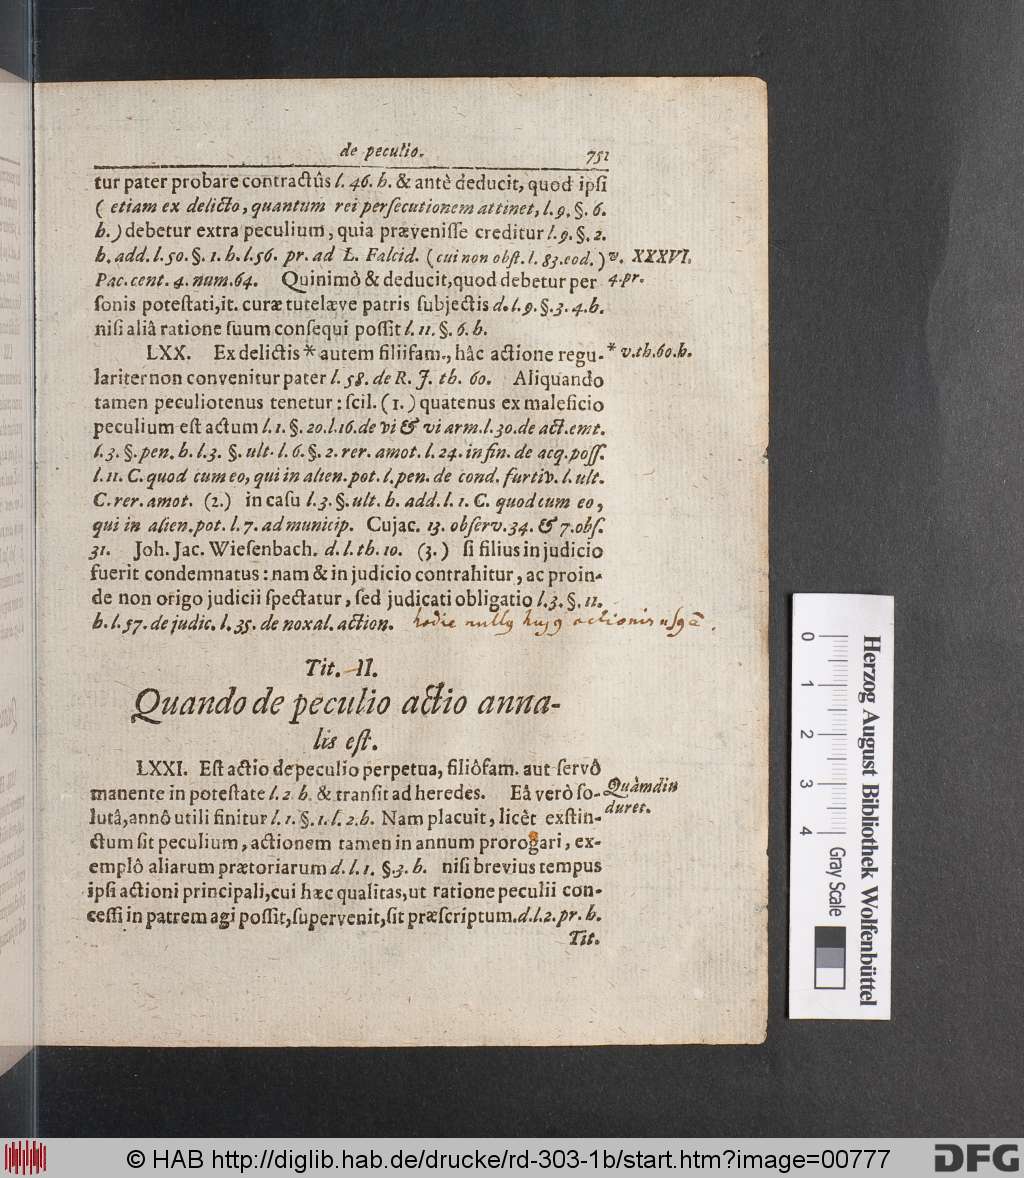 de peculio. 751
tur pater probare contractûs l. 46. h. & antè deducit, quod ipsi
( etiam ex delicto, quantum rei persecutionem attinet, l. 9. §. 6.
h. ) debetur extra peculium, quia prævenisse creditur l. 9. §. 2.
h. add. l. 50. §. 1. h. l. 56. pr. ad L. Falcid. ( cui non obst. l. 83. eod. ) v. XXXVI.
Pac. cent. 4. num. 64. Quinimò & deducit, quod debetur per 4. pr.
sonis potestati, it. curæ tutelæve patris subjectis d. l. 9. §. 3. 4. h.
nisi aliâ ratione suum consequi possit l. 11. §. 6. h.
LXX. Ex delictis * autem filiifam., hâc actione regu- * v. th. 60. h.
lariter non convenitur pater l. 58. de R. J. th. 60. Aliquando
tamen peculiotenus tenetur: scil. (1.) quatenus ex maleficio
peculium est actum l. 1. §. 20. l. 16. de vi & vi arm. l. 30. de act. emt.
l. 3. §. pen. h. l. 3. §. ult. l. 6. §. 2. rer. amot. l. 24. in fin. de acq. poss.
l. 11. C. quod cum eo, qui in alien. pot. l. pen. de cond. furtiv. l. ult.
C. rer. amot. (2.) in casu l. 3. §. ult. h. add. l. 1. C. quod cum eo,
qui in alien. pot. l. 7. ad municip. Cujac. 13. observ. 34. & 7. obs.
31. Joh. Jac. Wiesenbach. d. l. th. 10. (3.) si filius in judicio
fuerit condemnatus: nam & in judicio contrahitur, ac proin-
de non origo judicii spectatur, sed judicati obligatio l. 3. §. 11.
h. l. 57. de judic. l. 35. de noxal. action. hodie
Tit. II.
Quando de peculio actio anna-
lis est.
LXXI. Est actio de peculio perpetua, filiôfam. aut servô
manente in potestate l. 2 h. & transit ad heredes. Eâ verò so- Quàmdiu
lutâ, annô utili finitur l. 1. §. 1. l. 2. h. Nam placuit, licèt exstin- duret.
ctum sit peculium, actionem tamen in annum prorogari, ex-
emplô aliarum prætoriarum d. l. 1. §. 3. h. nisi brevius tempus
ipsi actioni principali, cui hæc qualitas, ut ratione peculii con-
cessi in patrem agi possit, supervenit, sit præscriptum. d. l. 2. pr. h.
Tit.
0 1 2 3 4
Herzog August Bibliothek Wolfenbüttel
Gray Scale
© HAB http://diglib.hab.de/drucke/rd-303-1b/start.htm?image=00777
DFG